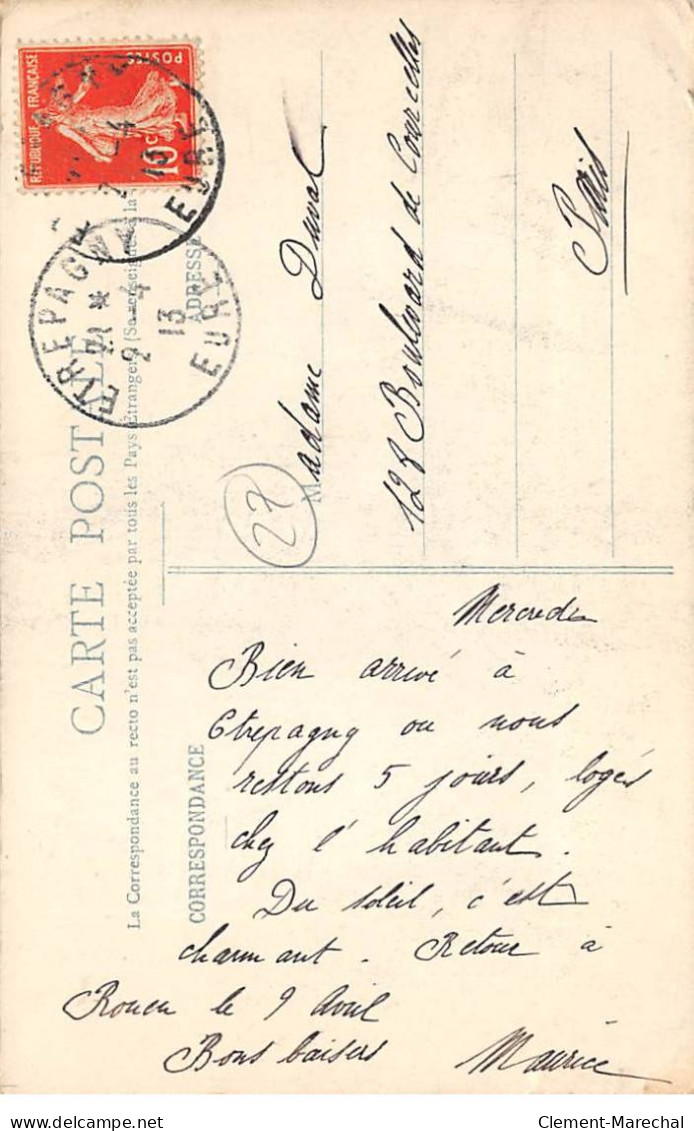 CARTE POSTALE
La Correspondance au recto n'est pas acceptée par tous les Pays Étrangers (Se renseigner à la
CORRESPONDANCE
ADRESSE
RÉPUBLIQUE FRANÇAISE
POSTES
10c
7-4
13
EURE
ETREPAGNY
2-4
13
EURE
27
Madame Duval
128 Boulevard de Courcelles
Paris
Mercredi
Bien arrivé à
Etrepagny ou nous
restons 5 jours, logés
chez l'habitant.
Du soleil, c'est
charmant. Retour à
Rouen le 9 Avril
Bons baisers Maurice
Clement-Marechal